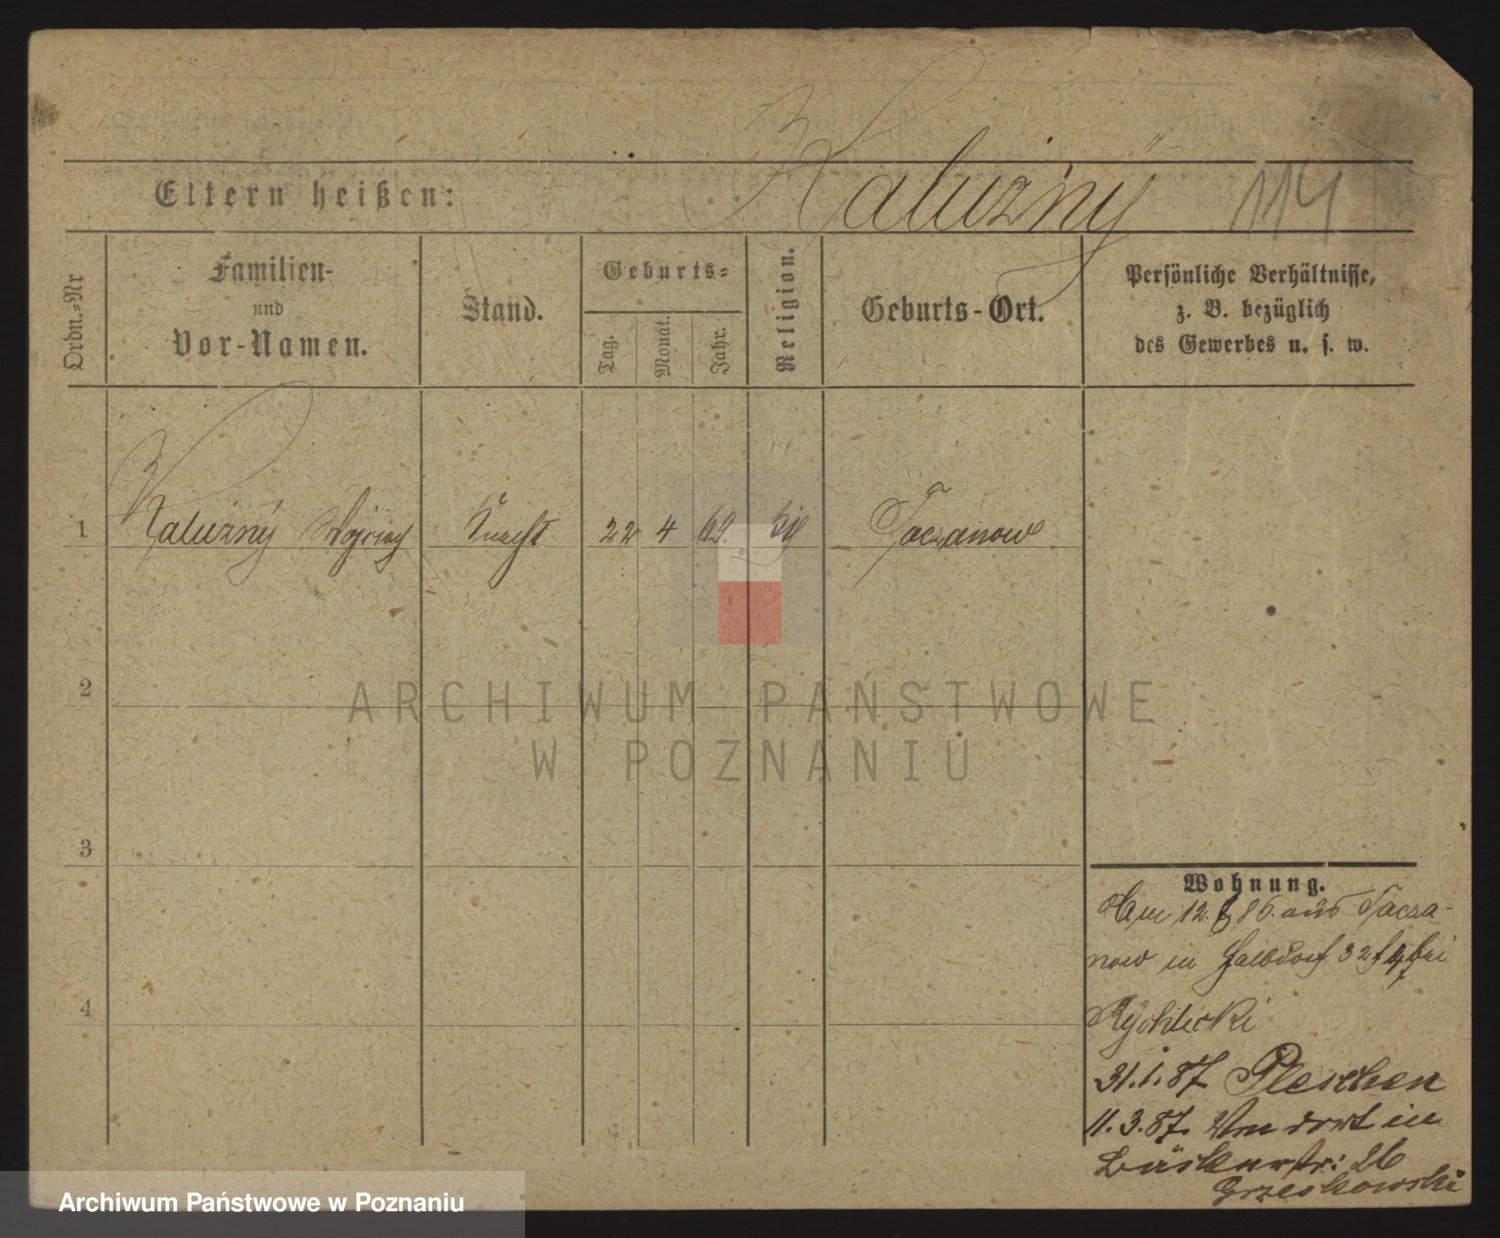 Kałużny 114
Eltern heißen:
Ordn.-Nr
Familien-
und
Vor-Namen.
Stand.
Geburts-
Tag.
Monat.
Jahr.
Religion.
Geburts-Ort.
Persönliche Verhältnisse,
z. B. bezüglich
des Gewerbes u. s. w.
1 Kałużny Wojciech Knecht 22 4 69. Taczanow
2
3
4
Wohnung.
Am 12. 86. aus Tacza-
now in Halbdorf 32 bei
Rychlicki
31.1.87 Pleschen
11.3.87. Von dort in
Bäckerstr: 26
Grzeskowski
ARCHIWUM PAŃSTWOWE
W POZNANIU
Archiwum Państwowe w Poznaniu